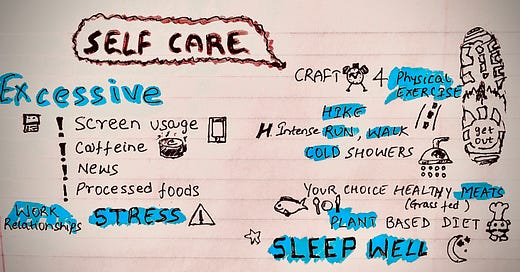 SELF CARE
Excessive
! Screen usage
! Caffeine
! News
! Processed foods
WORK
Relationships
STRESS
CRAFT 4 Physical
EXERCISE
HIKE
H.Intense RUN, WALK
COLD SHOWERS
get
out
YOUR CHOICE HEALTHY MEATS
(Grass fed)
PLANT BASED DIET
SLEEP WELL